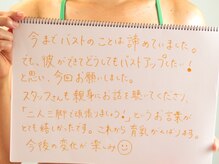 今までバストのことは諦めていました。
でも、彼ができてどうしてもバストアップしたい!
と思い、今回お願いしました。
スタッフさんも親身にお話を聴いてくださり、
「二人三脚で頑張りましょう!」というお言葉が
とても嬉しかったです。これから育乳がんばります。
今後の変化が楽しみ